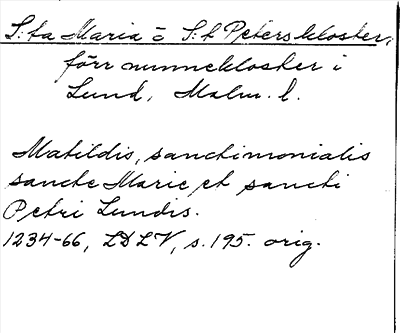 S:ta Maria o S:t Peters kloster,
förr nunnekloster i
Lund, Malm. l.
Matildis, sanctimonialis
sancte Marie et sancti
Petri Lundis.
1234-66, LDLV, s. 195. orig.